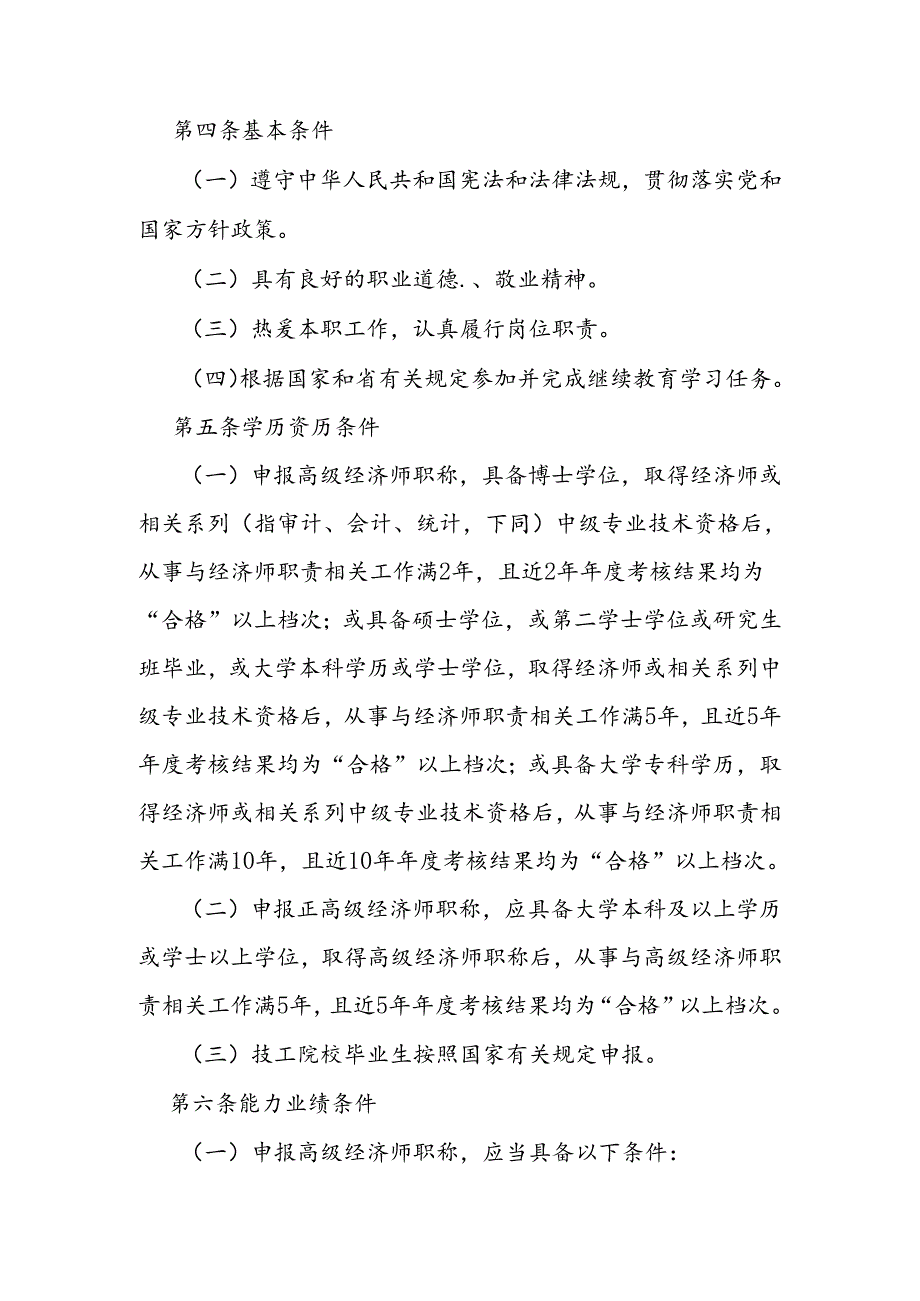 第四条基本条件
（一）遵守中华人民共和国宪法和法律法规，贯彻落实党和
国家方针政策。
（二）具有良好的职业道德.、敬业精神。
（三）热爱本职工作，认真履行岗位职责。
（四）根据国家和省有关规定参加并完成继续教育学习任务。
第五条学历资历条件
（一）申报高级经济师职称，具备博士学位，取得经济师或
相关系列（指审计、会计、统计，下同）中级专业技术资格后，
从事与经济师职责相关工作满2年，且近2年年度考核结果均为
“合格”以上档次；或具备硕士学位，或第二学士学位或研究生
班毕业，或大学本科学历或学士学位，取得经济师或相关系列中
级专业技术资格后，从事与经济师职责相关工作满5年，且近5年
年度考核结果均为“合格”以上档次；或具备大学专科学历，取
得经济师或相关系列中级专业技术资格后，从事与经济师职责相
关工作满10年，且近10年年度考核结果均为“合格”以上档次。
（二）申报正高级经济师职称，应具备大学本科及以上学历
或学士以上学位，取得高级经济师职称后，从事与高级经济师职
责相关工作满5年，且近5年年度考核结果均为“合格”以上档次。
（三）技工院校毕业生按照国家有关规定申报。
第六条能力业绩条件
（一）申报高级经济师职称，应当具备以下条件：